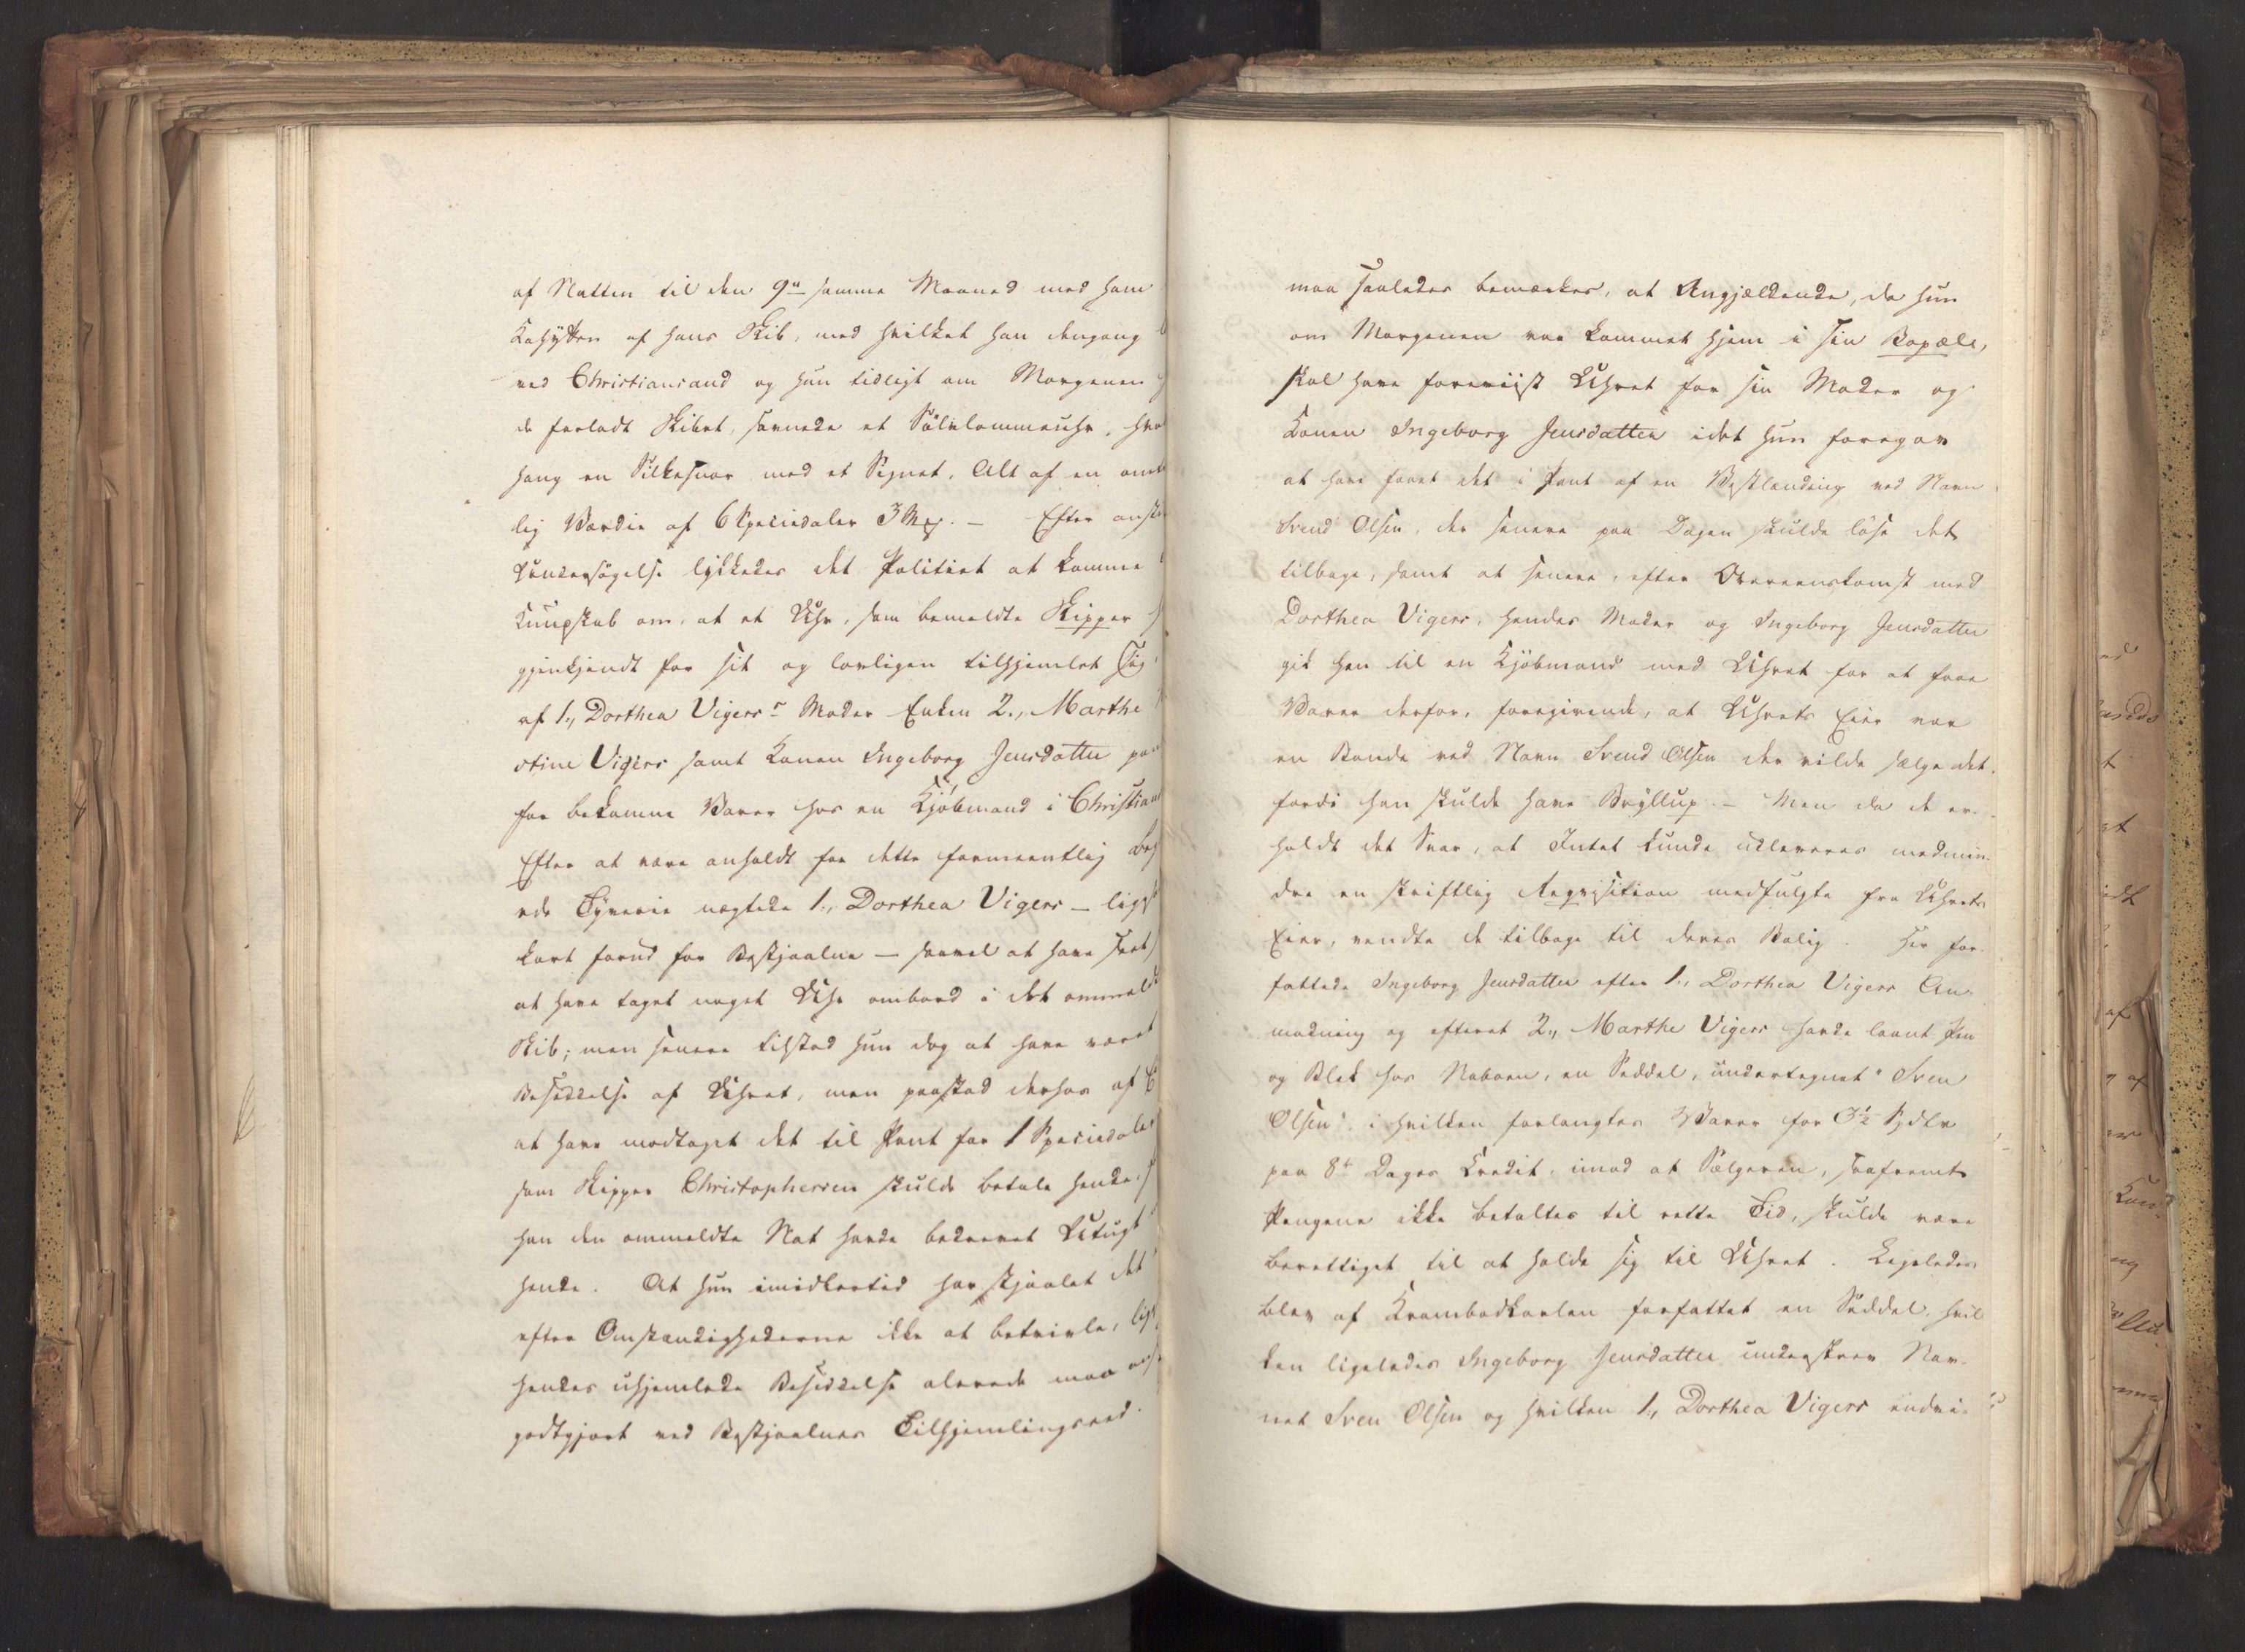 af Natten til den 9de samme Maaned med ham
Kahytten af hans Skib, med hvilket han dengang
ved Christiansand og hun tidligt om Morgenen
de forladt Skibet, savnede et Sølvlommeuhr, hvo
hang en Silkesnor med et Signet, Alt af en omt
lig Værdie af 6 Speciedaler 3 Mk. – Efter anst
Undersøgelse lykkedes det Politiet at komme
Kundskab om, at et Uhr, som bemeldte Skipper
gjenkjendt for sit og lovligen tilhjemlet sig,
af 1., Dorthea Vigers's Moder Enken 2., Marthe
stine Vigers samt Konen Ingeborg Jensdatter
for bekomne Varer hos en Kjöbmand i Christians
Efter at være anholdt for dette formeentlig
ede Tyverie nægtede 1., Dorthea Vigers – lig
kort forud for Bestjaalne – saavel at have
at have taget noget Uhr ombord i det ommeldte
Skib; men senere tilstod hun dog at have været
Besiddelse af Uhret, men paastod derhos af
at have modtaget det til Pant for 1 Speciedaler
som Skipper Christophersen skulde betale hende,
han den ommeldte Nat havde bedrevet Utugt
hende. At hun imidlertid har stjaalet det
efter Omstændighederne ikke at betvivle,
hendes uhjemlede Besiddelse alerede maa
godtgjort ved Bestjaalnes Tilhjemlingseed.
maa saaledes bemærkes, at Angjældende, da hun
om Morgenen var kommet hjem i sin Bopæl,
skal have foreviist Uhret for sin Moder og
Konen Ingeborg Jensdatter idet hun foregav
at have faaet det i Pant af en Vestlænding ved Navn
Svend Olsen, der senere paa Dagen skulde løse det
tilbage, samt at senere, efter Overeenskomst med
Dorthea Vigers, hendes Moder og Ingeborg Jensdatter
gik hen til en Kjöbmand med Uhret for at faae
Varer derfor, foregivende, at Uhrets Eier var
en Bonde ved Navn Svend Olsen der vilde sælge det,
fordi han skulde have Bryllup. – Men da de er-
holdt det Svar, at Intet kunde udleveres medmin-
dre en skriftlig Reqvisition medfulgte fra Uhrets
Eier, vendte de tilbage til deres Bolig. Her for-
fattede Ingeborg Jensdatter efter 1., Dorthea Vigers An-
modning og efterat 2., Marthe Vigers havde laant Pen
og Blek hos Naboen, en Seddel, undertegnet "Sven
Olsen" i hvilken forlangtes Varer for 3½ Spdlr
paa 8te Dages Credit, imod at Sælgeren, saafremt
Pengene ikke betaltes til rette Tid, skulde være
berettiget til at holde sig til Uhret. Ligeledes
blev af Krambodkarlen forfattet en Seddel, hvil
ken ligeledes Ingeborg Jensdatter underskrev Nav-
net Sven Olsen og hvilken 1., Dorthea Vigers endvi-